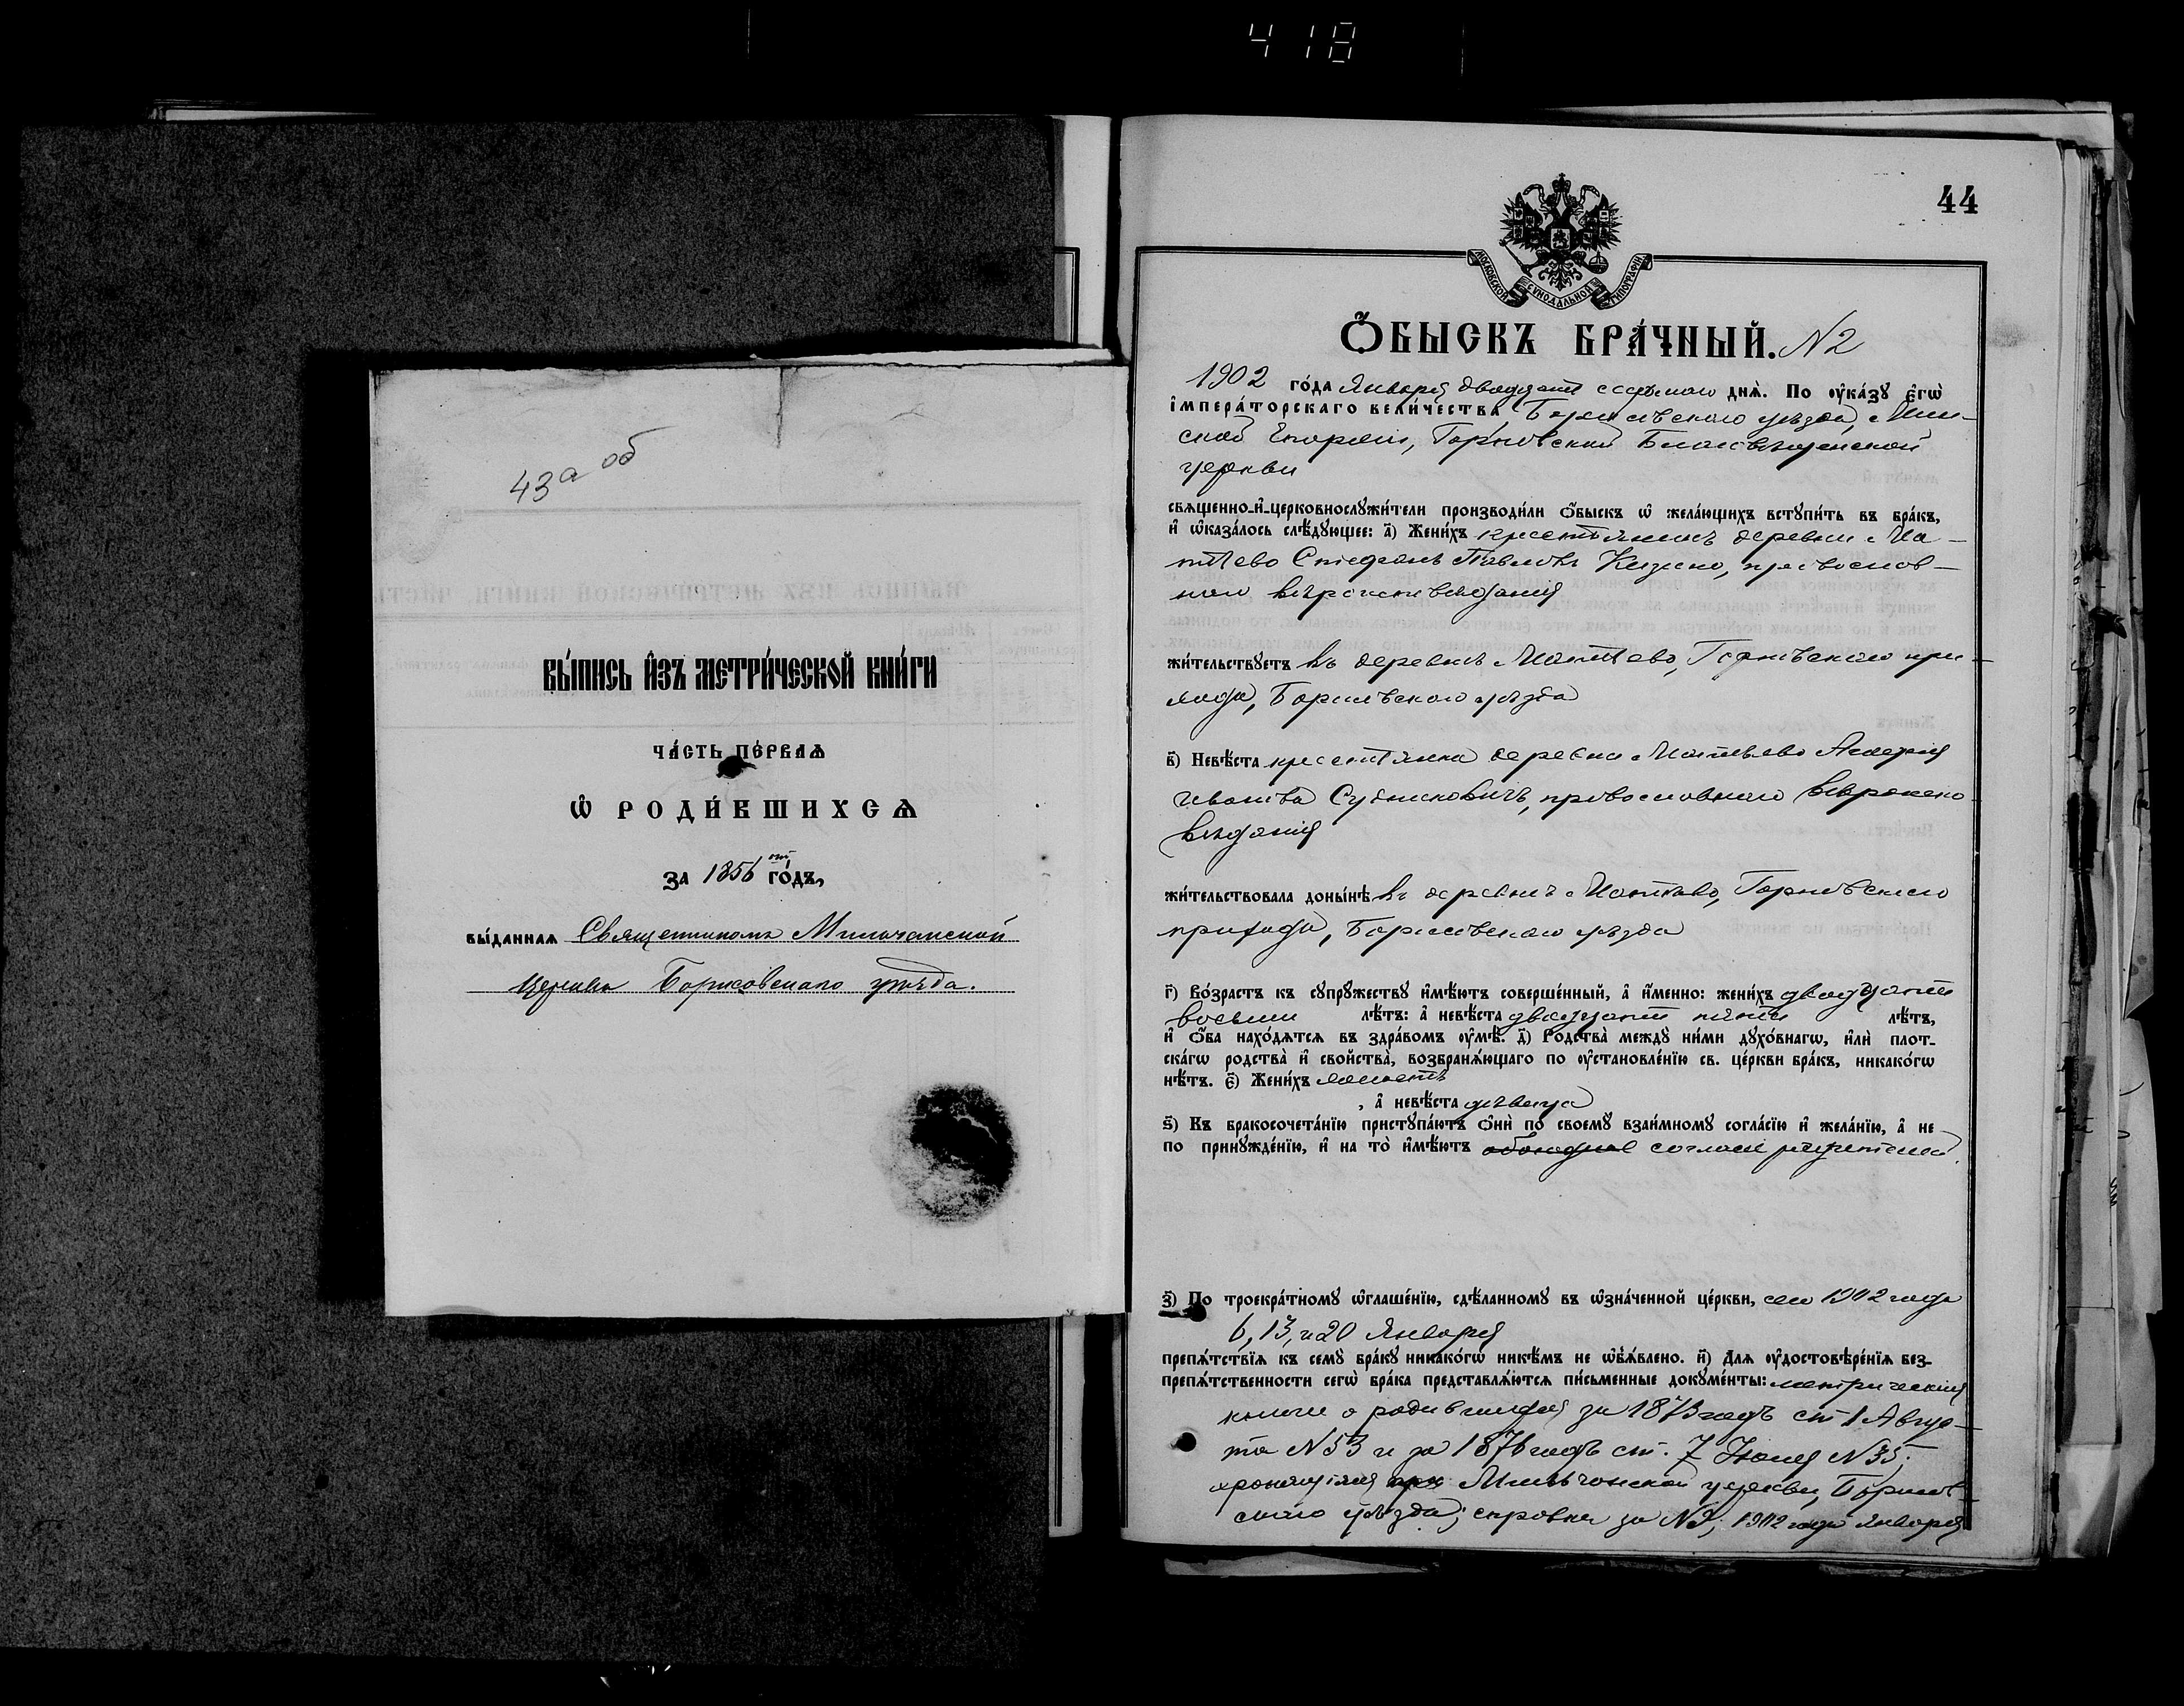 418
43а об
ВЫ́ПИСЬ И҆ЗЪ МЕТРИ́ЧЕСКОЙ КНИ́ГИ
ЧА́СТЬ ПЕ́РВАѦ
Ѽ РОДИ́ВШИХСѦ
ЗА 1856 ой ГО́ДЪ,
ВЫ́ДАННАѦ Священникомъ Мильчанской
церкви Борисовскаго уѣзда.
44
МОСКОВСКОЙ СѴНОДАЛЬНОЙ ТИПОГРАФІИ
Ѻ҆́БЫСКЪ БРА́ЧНЫЙ. N2
1902 го́да Января двадцать седьмого днѧ̀. По ᲂу҆ка́зꙋ є҆гѡ̀
і҆мпера́торскагѡ вели́чества, Борисовскаго уѣзда, Мин-
ской Епархіи, Благовѣщенской
церкви
свѧще́нно-и҆-церковнослꙋжи́тели производи́ли ѻ҆́быскъ ѡ҆ жела́ющихъ вступи́ть въ бра́къ,
и҆ ѡ҆каза́лось слѣ́дꙋющее: а҃) Жени́хъ крестьянинъ деревни Ма-
тѣево Стефанъ Павловъ православ-
наго вѣроисповѣданія
жи́тельствꙋетъ въ деревнѣ при-
хода, Борисовскаго уѣзда
в҃) Невѣ́ста крестьянка деревни
Иванова православнаго вѣроиспо-
вѣданія
жи́тельствовала доны́нѣ въ деревнѣ
прихода, Борисовскаго уѣзда
г҃) Во́зрастъ къ сꙋпрꙋ́жествꙋ и҆мѣ́ютъ соверше́нный, а҆ и҆́менно: жени́хъ двадцати
восьми лѣ́тъ: а҆ невѣ́ста двадцати пяти лѣ́тъ,
и҆ ѻ҆́ба нахо́дѧтсѧ въ здра́вомъ ᲂу҆мѣ̀. д҃) Родства̀ междꙋ̀ ни́ми дꙋхо́внагѡ, и҆лѝ плот-
ска́гѡ родства̀ и҆ сво́йства̀, возбранѧ́ющаго по ᲂу҆становле́нїю св. це́ркви бра́къ, никако́гѡ
нѣ́тъ. є҃) Жени́хъ холостъ
, а҆ невѣ́ста дѣвица
ѕ҃) Къ бракосочета́нїю пристꙋпа́ютъ ѻ҆нѝ по своемꙋ̀ взаи́мномꙋ согла́сїю и҆ жела́нїю, а҆ не
по принꙋжде́нїю, и҆ на то̀ и҆мѣ́ютъ обоюдное согласіе родителей.
з҃) По троекра́тномꙋ ѡ҆глаше́нїю, сдѣ́ланномꙋ въ ѡ҆зна́ченной це́ркви, сего 1902 года
6, 13, и 20 Января
препѧ́тствїѧ къ семꙋ̀ бра́кꙋ никако́гѡ никѣ́мъ не ѡ҆б̾ѧ́влено. и҃) Длѧ ᲂу҆достовѣре́нїѧ без-
препѧ́тственности сегѡ̀ бра́ка представлѧ́ютсѧ пи́сьменные докꙋме́нты: метрическія
книги о родившихся за 1873 годъ ст. 1 Авгус-
та N53 и за 1876 годъ ст. 7 N35,
хранящіяся Мильчанской церкви, Борисов-
скаго уѣзда; справка за N9, 1902 года Января